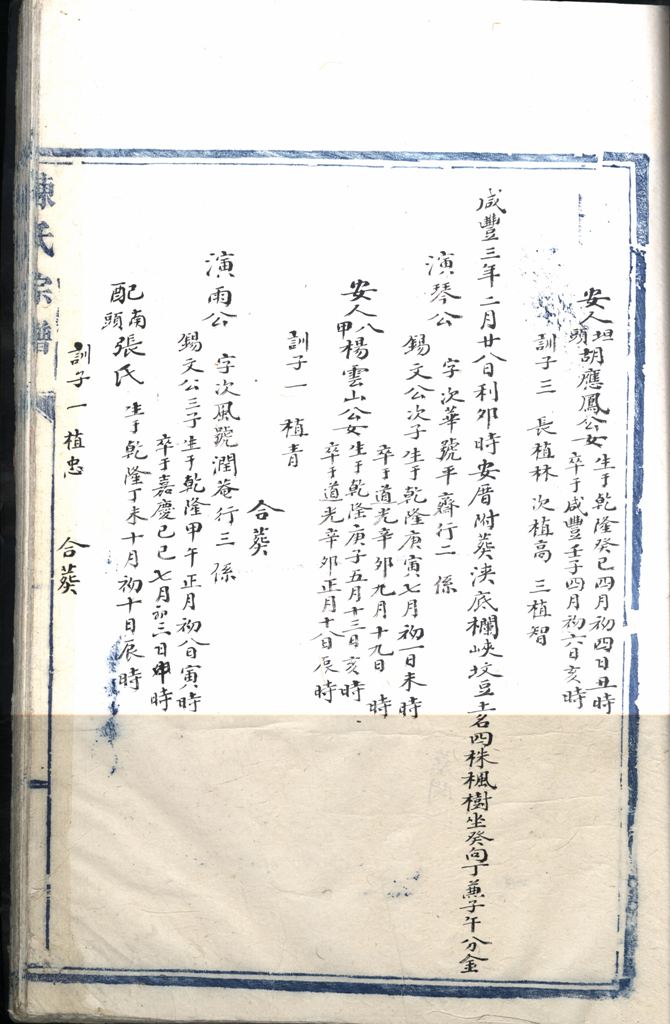 安人坦頭胡應鳳公女生于乾隆癸巳四月初四日丑時
卒于咸豐壬子四月初六日亥時
訓子三 長植林 次植高 三植智
咸豐三年二月廿八日利夘時安厝附葬決底欄峽坟豆土名四株楓樹坐癸向丁兼子午分金
演琴公 字次華號平齋行二 係
錫文公次子生于乾隆庚寅七月初一日未時
卒于道光辛卯九月十九日 時
安人八甲楊雲山公女生于乾隆庚子五月廿三日亥時
卒于道光辛夘正月十八日辰時
訓子一 植青
合葬
演雨公 字次風號潤菴行三 係
錫文公三子生于乾隆甲午正月初八日寅時
卒于嘉慶己巳七月初三日申時
配南頭張氏 生于乾隆丁未十月初十日辰時
訓子一植忠 合葬
陳氏宗譜